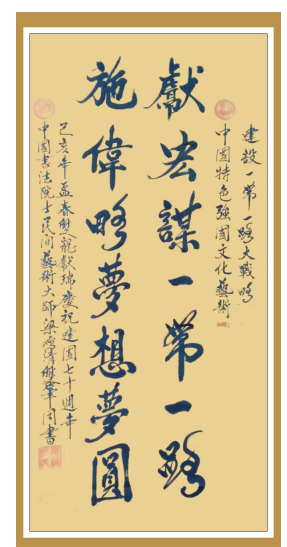 建設一帶一路大戰略
中國特色強國文化藝術
獻宏謀一帶一路
施偉略夢想夢圓
己亥年孟春雙龍獻瑞慶祝建國七十週年
中國書法院士民間藝術大師梁
同書